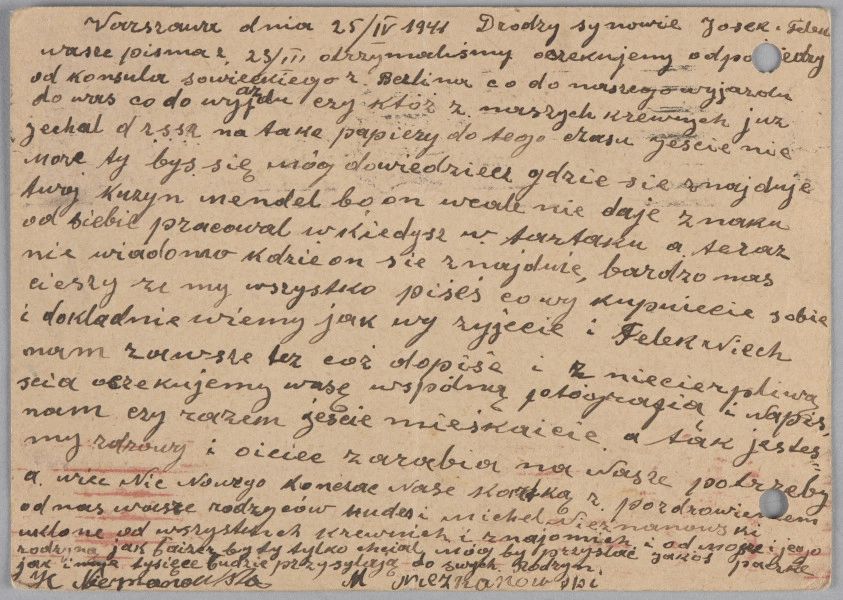 Varszawa dnia 25/IV 1941 Drodzy synowie Josek i Felek
wasze pisma z 23/III otrzymaliśmy oczekujemy odpowiedzy
od konsula sowieckiego z Berlina co do naszego wyjazdu
do was co do wyjazdu czy któż z naszych krewnych już
jechal d z.s.s.r. na take papiery do tego czasu jeście nie
może ty byś się móg dowiedziecz gdzie sie znajduje
twoj kuzyn Mendel bo on wcale nie daje znaku
od siebie pracowal w kiedysz w tartaku a teraz
nie wiadomo kdzie on sie znajduie, bardzo nas
cieszy ze my wszystko pišeś co wy kupuiecie sobie
i dokladnie wiemy jak wy zyjecie i Felek niech
nam zawsze też coż dopiše i z niecierpliwo
scia oczekujemy waszę wspolną fotografia i napisz
nam czy razem jeście mieśkaicie a tak jesteś=
my zdrowy i oiciec zarabia na nasze potrzeby
a wiec Nic Nowego Konczac Nase kartką z pozdrowieniem
od nas wasze rodzyców Hudes i Michel Nieznanowski
uklone od wszystkich krewnich i znajomich i od Mojse i jego
rodzyna jak Faizer by ty tylko chcial móg by przyslać jakoś paczke
jak inuje tysiące ludzie przysylają do swych Rodzyn.
H Nieznanowska M Nieznanowski